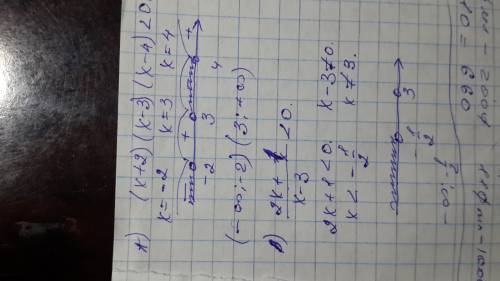 *) (x+2)(x-3)(x-4)<0
x=-2 x=3 x=4
- + - +
-2 3 4
(-∞;-2) (3;+∞)
b) 2x+1/x-3 <0.
2x+1<0. x-3≠0.
x<-1/2 x≠3.
-1/2 3
-∞; -1/2